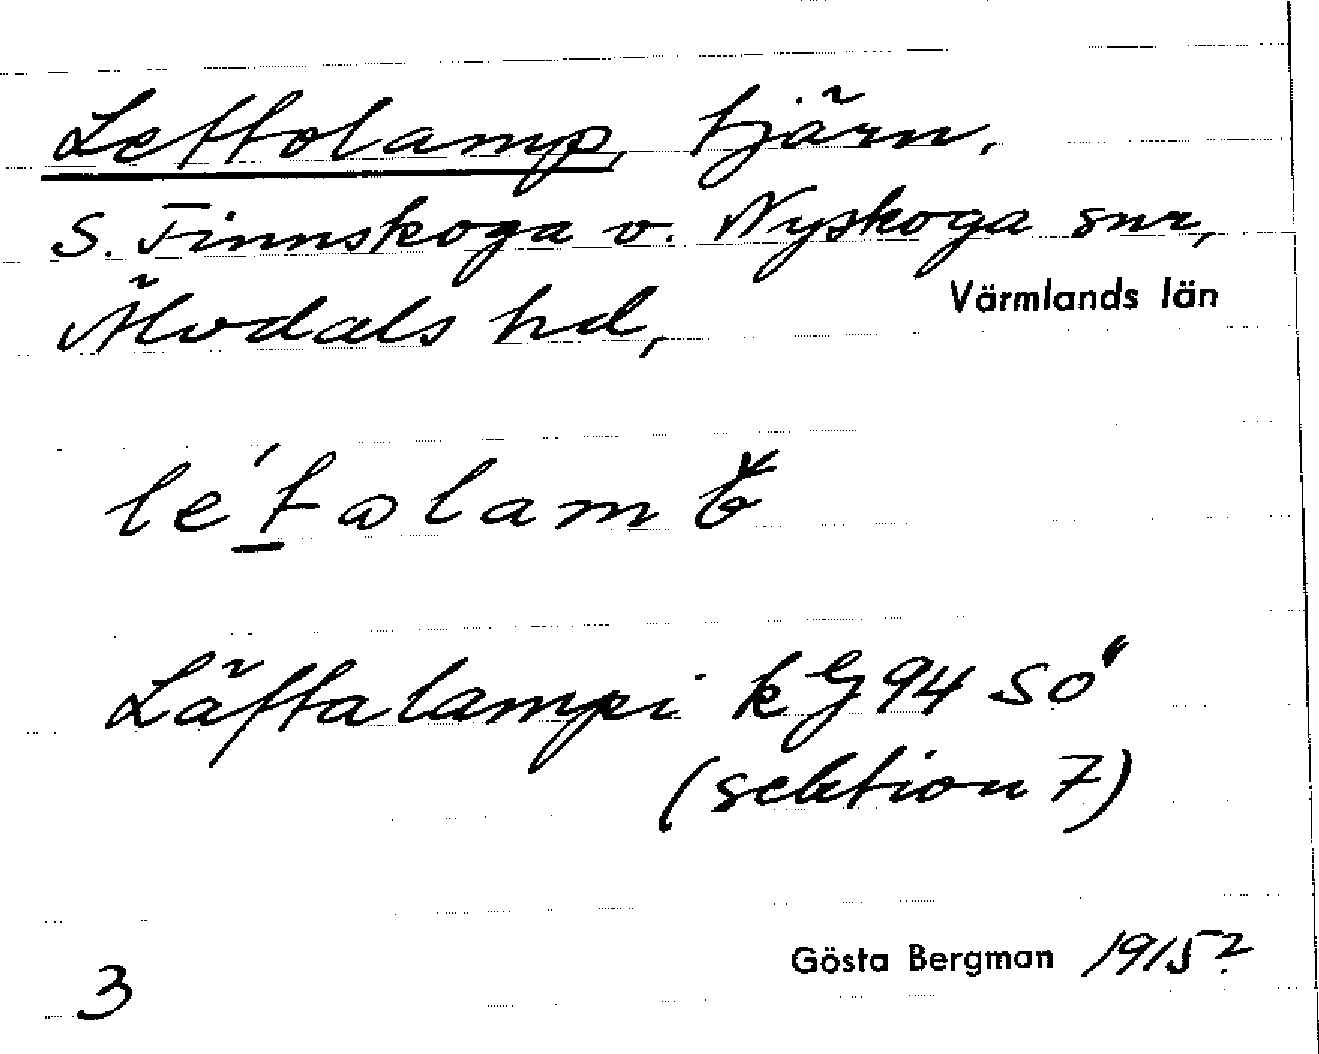 Lettolamp, tjärn,
S. Finnskoga o. Nyskoga snr,
Älvdals hd, Värmlands län
Läftalampi kG 94 SÖ
(sektion 7)
3 Gösta Bergman 1915?